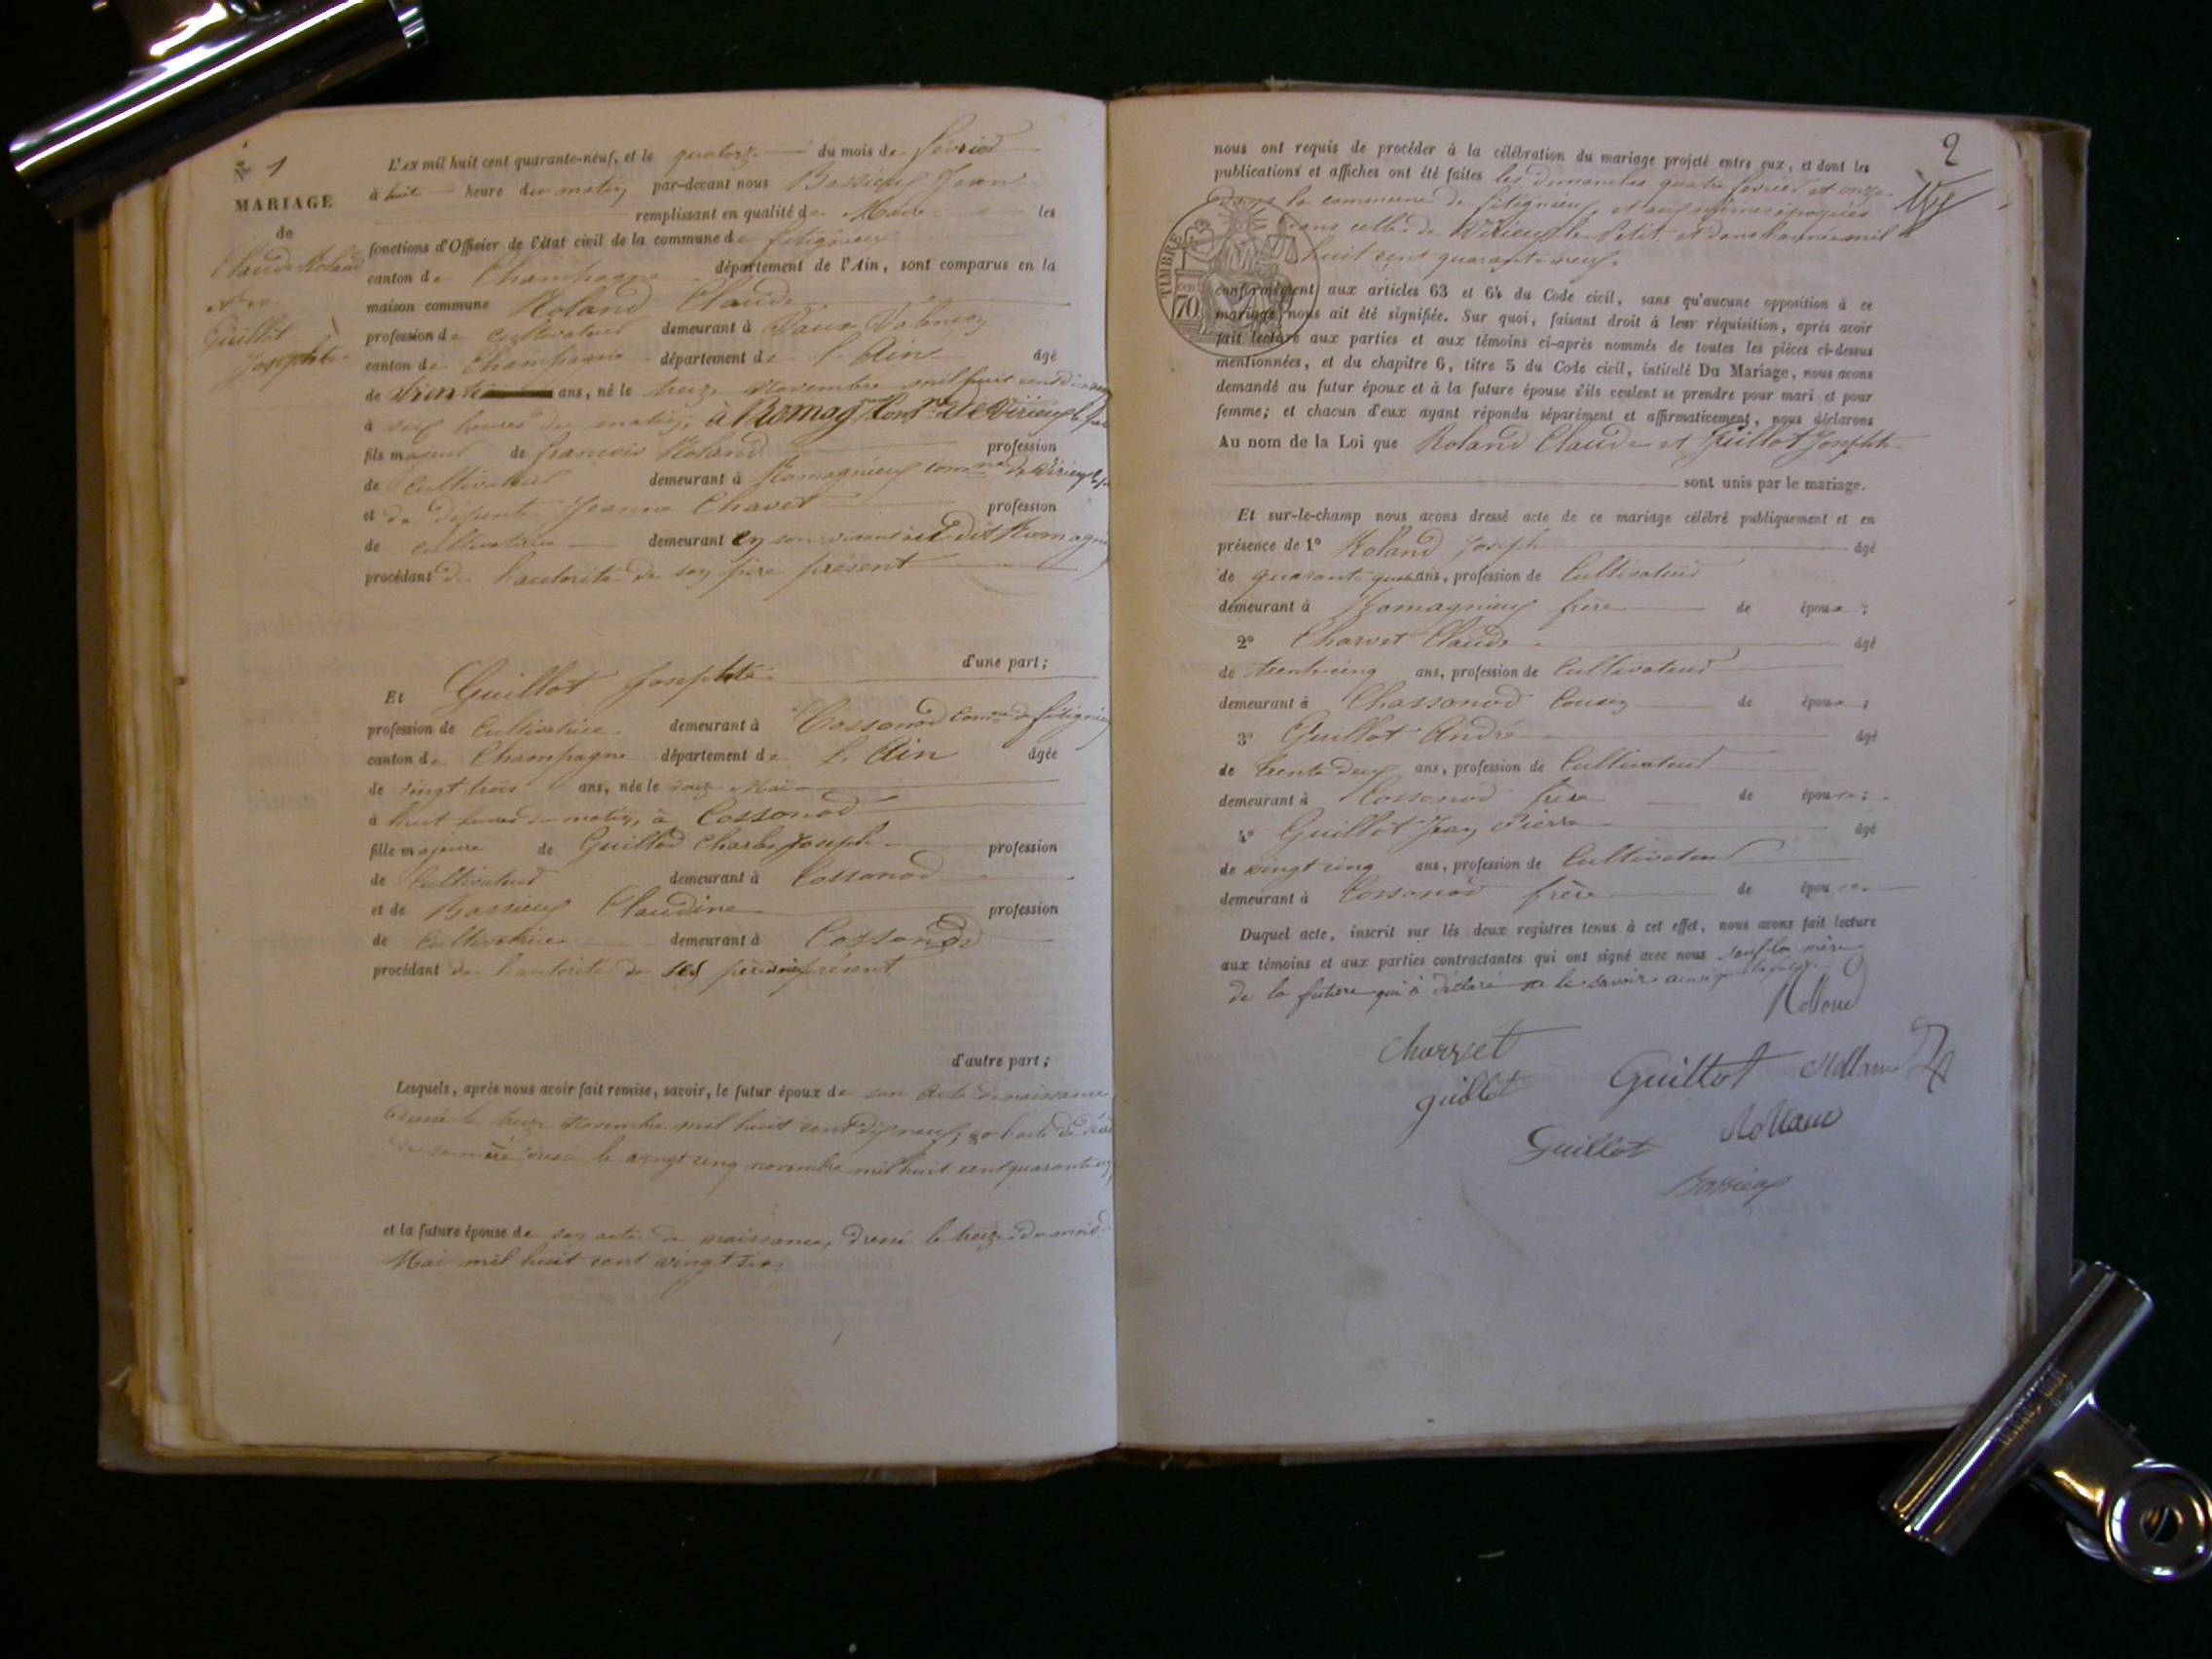 N° 1
MARIAGE
de
Claude Roland
et de
Guillot
Josephte
L'AN mil huit cent quarante-neuf, et le quatorze du mois de février
à huit heure du matin par-devant nous Bassieux Jean
remplissant en qualité de Maire les
fonctions d'Officier de l'état civil de la commune de fitignieux
canton de Champagne département de l'Ain, sont comparus en la
maison commune Roland Claude
profession de cultivateur demeurant à Vaux
canton de Champagne département de l'Ain âgé
de trente ans, né le treize Novembre mil huit cent
à heures du matin, à Romag Comne de Virieux le
fils majeur de françois Roland profession
de Cultivateur demeurant à Romagnieux comne de Virieux le
et de défunte Jeanne Chavet profession
de cultivatrice demeurant en son vivant dit Romag
procédant de l'autorité de son père présent
d'une part;
Et Guillot Josephte
profession de Cultivatrice demeurant à Cossonod Comne de fitignieu
canton de Champagne département de L'Ain âgée
de vingt trois ans, née le Mai
à huit heures du matin, à Cossonod
fille majeure de Guillot Charles Joseph profession
de Cultivateur demeurant à Cossonod
et de Bassieux Claudine profession
de Cultivatrice demeurant à Cossonod
procédant de l'autorité de ses père mère présent
d'autre part;
Lesquels, après nous avoir fait remise, savoir, le futur époux de son acte de naissance
dressé le treize Novembre mil huit cent dix neuf; l'acte de décès
de sa mère dressé le vingt cinq novembre mil huit cent quarante
et la future épouse de son acte de naissance, dressé le treize du mois de
Mai mil huit cent vingt six.
2
nous ont requis de procéder à la célébration du mariage projeté entre eux, et dont les
publications et affiches ont été faites les dimanches quatre fevrier et onze
dans la commune de fitignieux, et aux mêmes époques
dans celle de Virieux le Petit et dans l'année mil
huit cent quarante neuf.
TIMBRE
CEN
70
conformément aux articles 63 et 64 du Code civil, sans qu'aucune opposition à ce
mariage nous ait été signifiée. Sur quoi, faisant droit à leur réquisition, après avoir
fait lecture aux parties et aux témoins ci-après nommés de toutes les pièces ci-dessus
mentionnées, et du chapitre 6, titre 5 du Code civil, intitulé Du Mariage, nous avons
demandé au futur époux et à la future épouse s'ils veulent se prendre pour mari et pour
femme; et chacun d'eux ayant répondu séparément et affirmativement, nous déclarons
Au nom de la Loi que Roland Claude et Guillot Josephte
sont unis par le mariage.
Et sur-le-champ nous avons dressé acte de ce mariage célébré publiquement et en
présence de 1° Roland Joseph âgé
de quarante quatre ans, profession de Cultivateur
demeurant à Romagnieux frère de époux;
2° Charvet Claude âgé
de trente cinq ans, profession de Cultivateur
demeurant à Chassonod Cousin de époux;
3° Guillot André âgé
de trente deux ans, profession de Cultivateur
demeurant à Cossonod frère de épouse;
4° Guillot Jean Pierre âgé
de vingt cinq ans, profession de Cultivateur
demeurant à Cossonod frère de épouse
Duquel acte, inscrit sur les deux registres tenus à cet effet, nous avons fait lecture
aux témoins et aux parties contractantes qui ont signé avec nous sauf la mère
de la future qui a déclaré ne le savoir ainsi que la future
Rolland
Charvet
Guillot Rolland
guillot
Rolland
Guillot
Bassieux